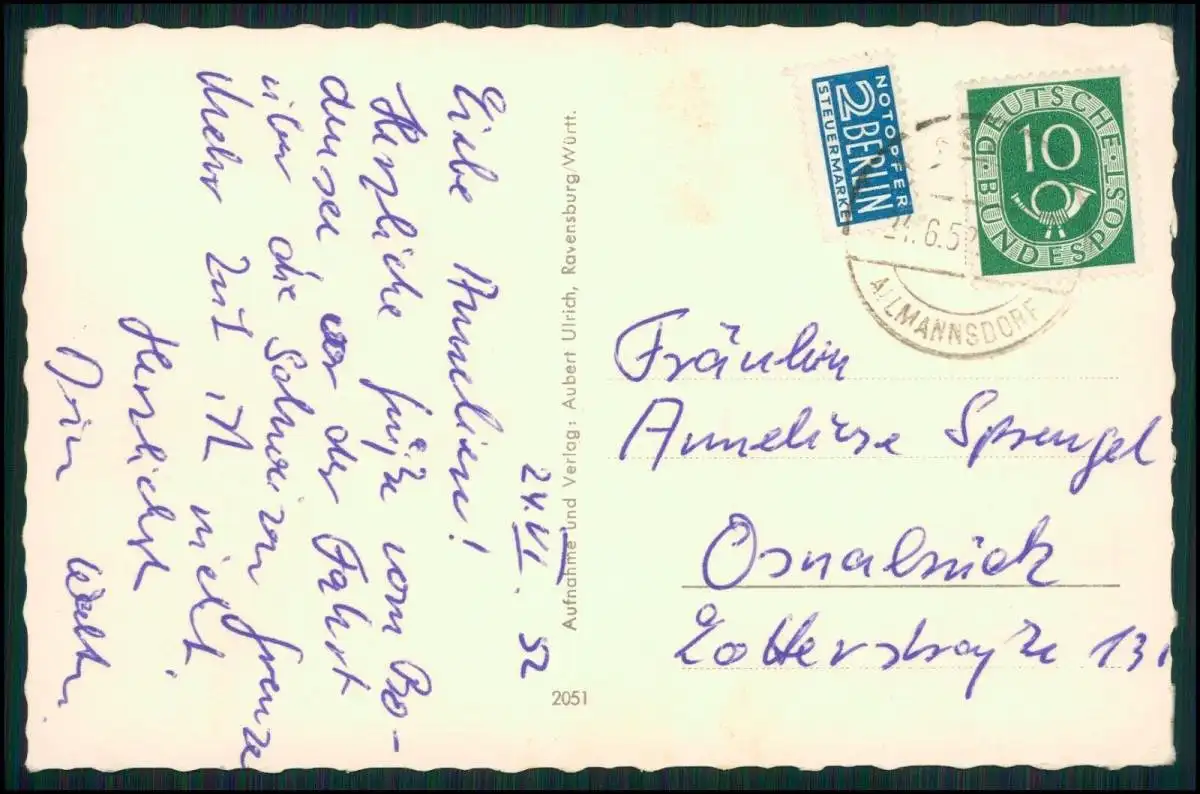 24.VI.52
Liebe Anneliese!
Herzliche Grüße vom Bo-
densee vor der Fahrt
über die Schweizer Grenze
Mehr Zeit ist nicht.
Herzlichst
Dein Walter.
Aufnahme und Verlag: Aubert Ulrich, Ravensburg/Württ.
2051
NOTOPFER
2 BERLIN
STEUERMARKE
DEUTSCHE
10
BUNDESPOST
24.6.52
ALLMANNSDORF
Fräulein
Anneliese Sprengel
Osnabrück
Lotterstraße 131